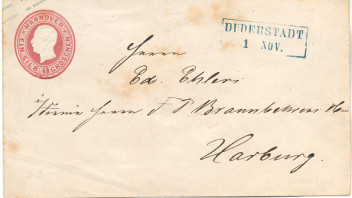 HANNOVER
EIN SILBERGROSCHEN
DUDERSTADT
1 NOV.
Herrn
Ed. Ehlers
Herrn F. P. Brannbehrens
Harburg.